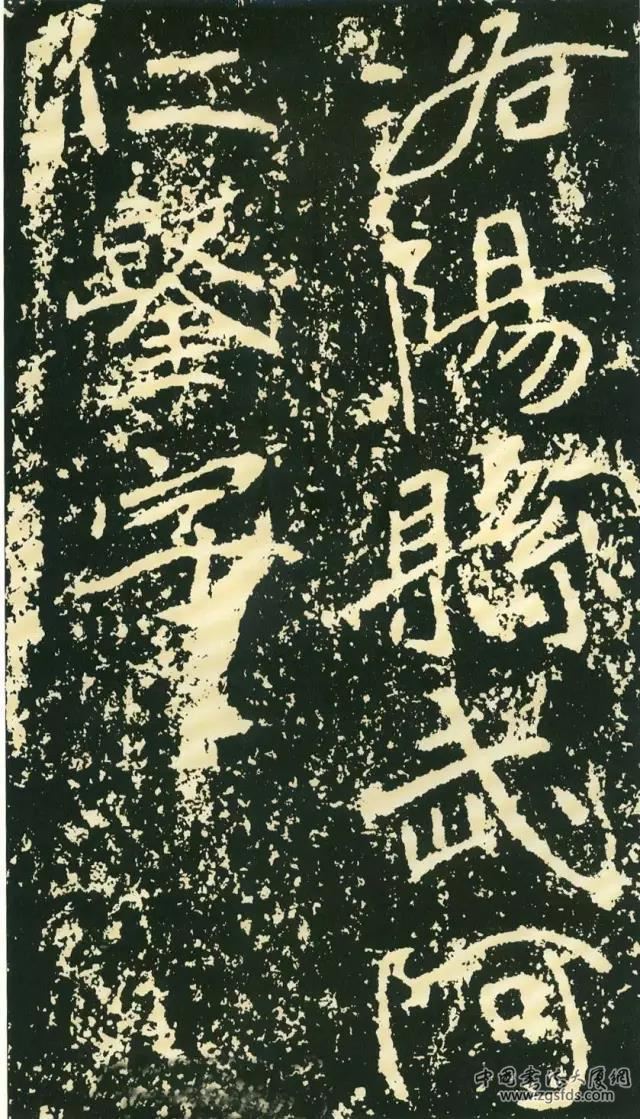 洛陽縣武阿
仁鑿字
中国书法大厦網
www.zgsfds.com